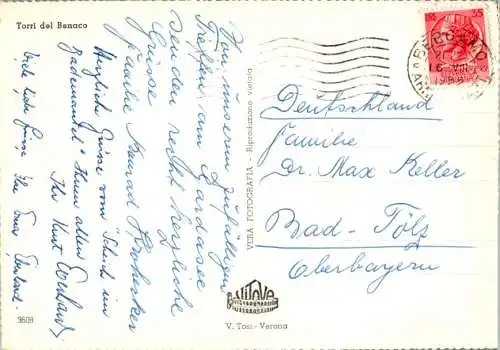 Torri del Benaco
Von unserem zufälligen
Treffen am Gardasee
senden recht herzliche
Grüsse
Familie Konrad
Herzliche Grüsse vom "Scheich im
Bademantel" Ihnen allen
Ihr Kurt Eberhard
Viele liebe Grüsse Ihre
3608
VERA FOTOGRAFIA - Riproduzione vietata
Deutschland
Familie
Dr. Max Keller
Bad-Tölz
Oberbayern
V. Tosi - Verona